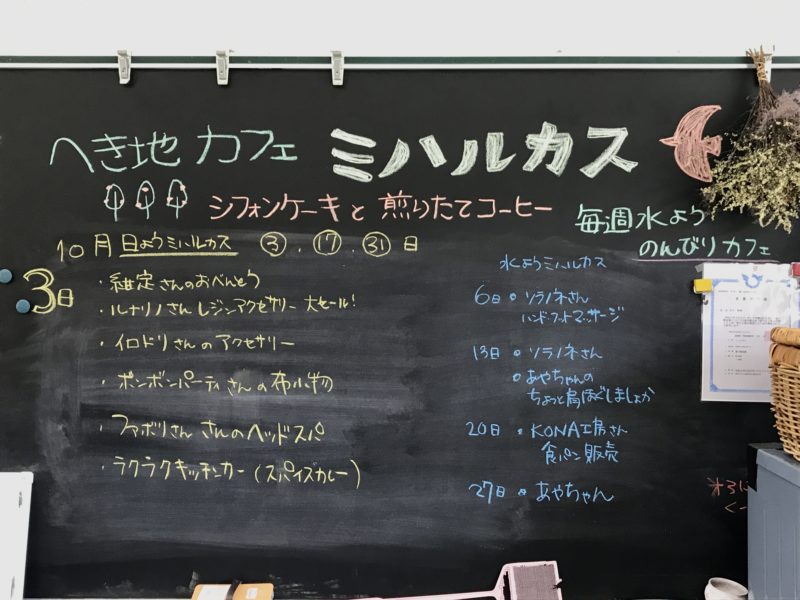 へき地カフェ ミハルカス
シフォンケーキと煎りたてコーヒー
毎週水よう
のんびりカフェ
10月日ようミハルカス ③.⑰.㉛日
3日
・維定さんのおべんとう
・ルナリノさんレジンアクセサリー 大セール!
・イロドリさんのアクセサリー
・ポンポンパーティさんの布小物
・ファボリさんさんのヘッドスパ
・ラクラクキッチンカー(スパイスカレー)
水ようミハルカス
6日 ソラノネさん
ハンド・フットマッサージ
13日 ソラノネさん
あやちゃんの
ちょっと肩ほぐしましょか
20日 KONA工房さん
食パン販売
27日 あやちゃん